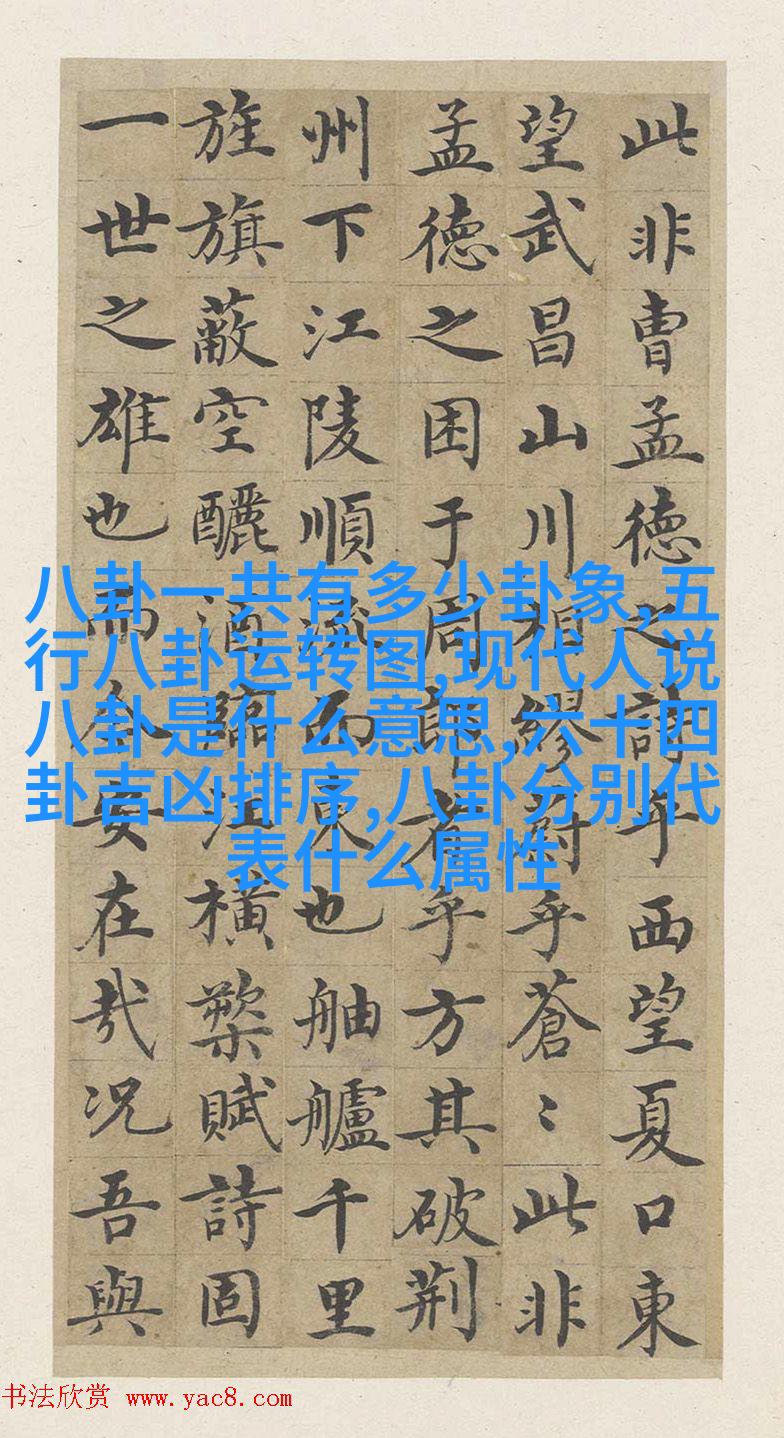 此非曹孟德之詩乎西望夏口東
望武昌山川相繆乎蒼〻此非
孟德之困于周郎者乎方其破荊
州下江陵順流而東也舳艫千里
旌旗蔽空釃酒臨江橫槊賦詩固
一世之雄也而今安在哉況吾與
八卦一共有多少卦象,五
行八卦运转图,现代人说
八卦是什么意思,六十四
卦吉凶排序,八卦分别代
表什么属性
书法欣赏 www.yac8.com